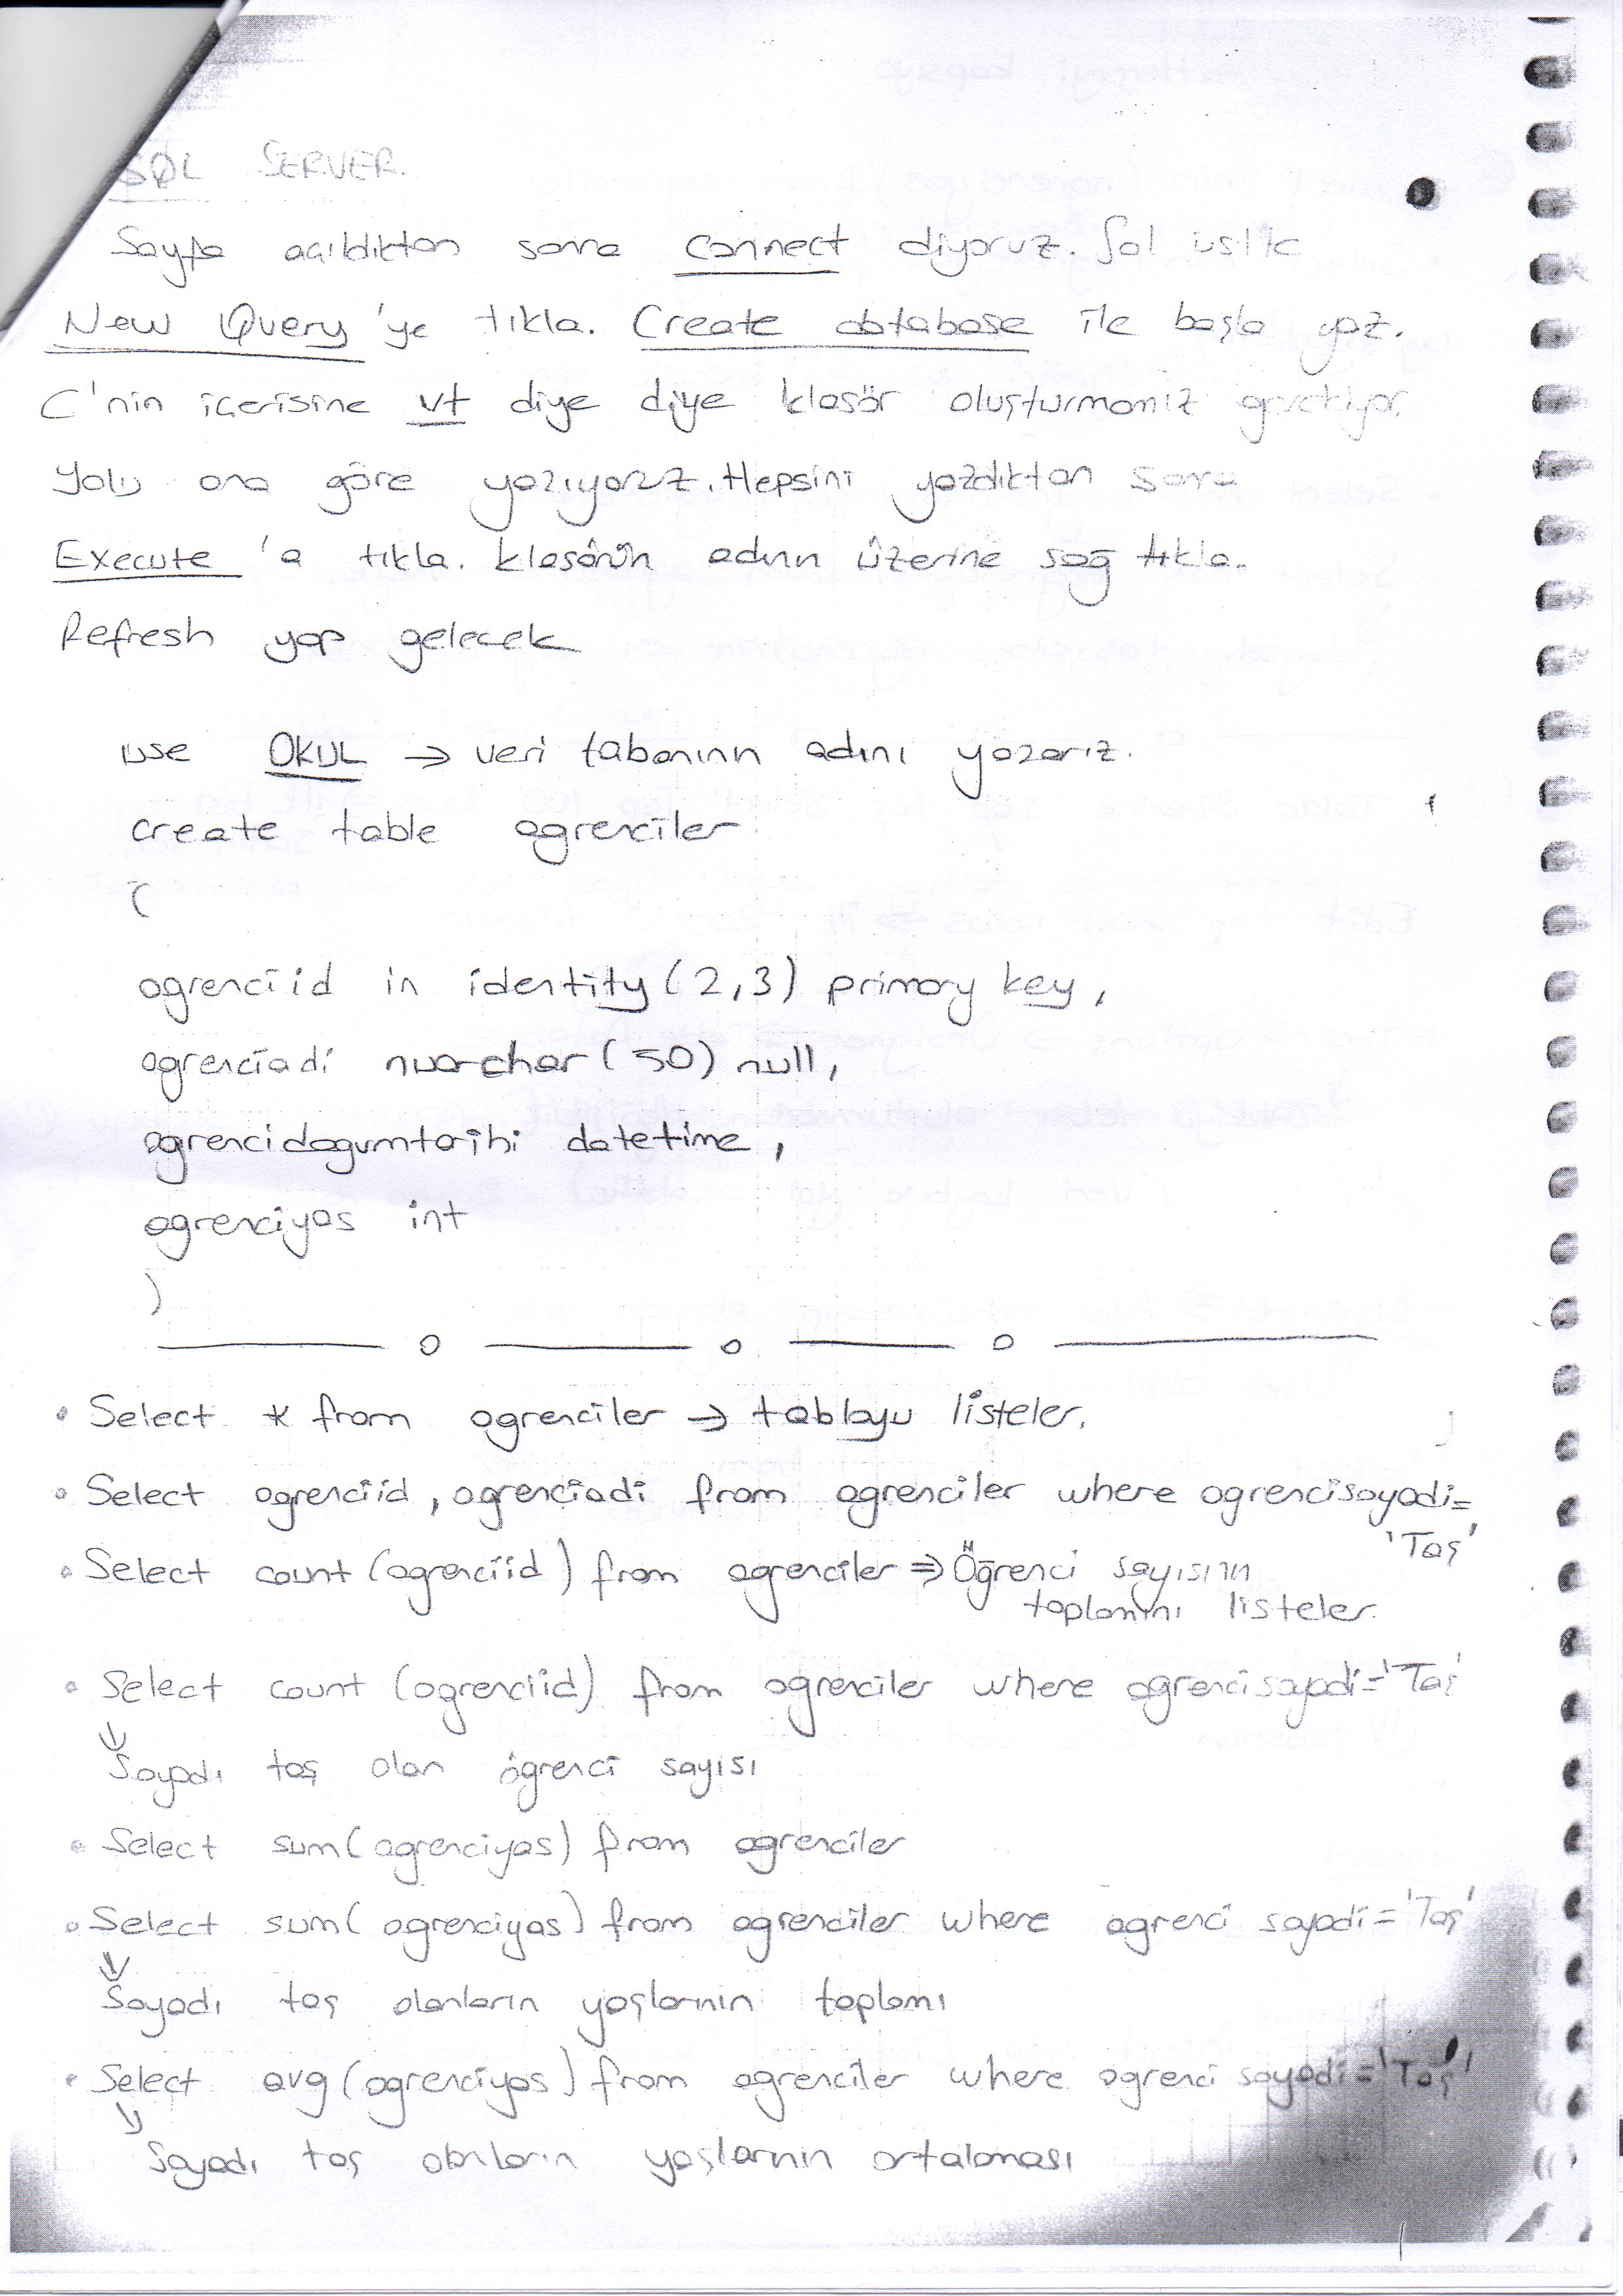 SQL SERVER.
Sayfa açıldıktan sonra connect diyoruz. Sol üstte
New Query 'ye tıkla. Create database ile başla yaz.
C'nin içerisine vt diye diye klasör oluşturmamız gerekiyor.
Yolu ona göre yazıyoruz. Hepsini yazdıktan sonra
Execute 'a tıkla. klasörün adının üzerine sağ tıkla.
Refresh yap gelecek
use OKUL → veri tabanının adını yazarız.
create table ogrenciler
(
ogrenciid in identity (2,3) primary key,
ogrenciadi nvarchar (50) null,
ogrencidogumtarihi datetime,
ogrenciyas int
)
• Select * from ogrenciler → tabloyu listeler.
• Select ogrenciid, ogrenciadi from ogrenciler where ogrencisoyadi=
'Taş'
• Select count (ogrenciid) from ogrenciler ⇒ Öğrenci sayısının
toplamını listeler.
• Select count (ogrenciid) from ogrenciler where ogrencisoyadi='Taş'
⇓
Soyadı taş olan öğrenci sayısı
• Select sum (ogrenciyas) from ogrenciler
• Select sum (ogrenciyas) from ogrenciler where ogrenci soyadi='Taş'
⇓
Soyadı taş olanların yaşlarının toplamı
• Select avg (ogrenciyas) from ogrenciler where ogrenci soyadi='Taş'
⇓
Soyadı taş olanların yaşlarının ortalaması